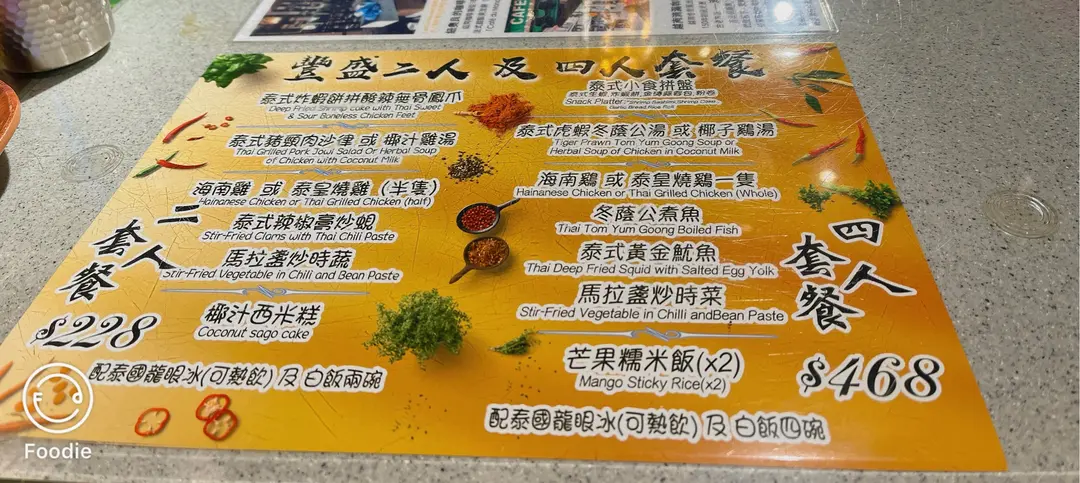 CAFE
豐盛二人 及 四人套餐
泰式炸蝦餅拼酸辣無骨鳳爪
Deep Fried Shrimp cake with Thai Sweet
& Sour Boneless Chicken Feet
泰式豬頸肉沙律 或 椰汁雞湯
Thai Grilled Pork Jowl Salad Or Herbal Soup
of Chicken with Coconut Milk
海南雞 或 泰皇燒雞 (半隻)
Hainanese Chicken or Thai Grilled Chicken (half)
泰式辣椒膏炒蜆
Stir-Fried Clams with Thai Chili Paste
馬拉盞炒時蔬
Stir-Fried Vegetable in Chili and Bean Paste
椰汁西米糕
Coconut sago cake
二人套餐
$228
配泰國龍眼冰(可熱飲) 及 白飯兩碗
泰式小食拼盤
Snack Platter
Garlic Bread, Rice Roll
泰式虎蝦冬蔭公湯 或 椰子鷄湯
Tiger Prawn Tom Yum Goong Soup or
Herbal Soup of Chicken in Coconut Milk
海南鷄 或 泰皇燒鷄一隻
Hainanese Chicken or Thai Grilled Chicken (Whole)
冬蔭公煮魚
Thai Tom Yum Goong Boiled Fish
泰式黃金魷魚
Thai Deep Fried Squid with Salted Egg Yolk
馬拉盞炒時菜
Stir-Fried Vegetable in Chilli andBean Paste
芒果糯米飯(x2)
Mango Sticky Rice(x2)
四人套餐
$468
配泰國龍眼冰(可熱飲) 及 白飯四碗
Foodie